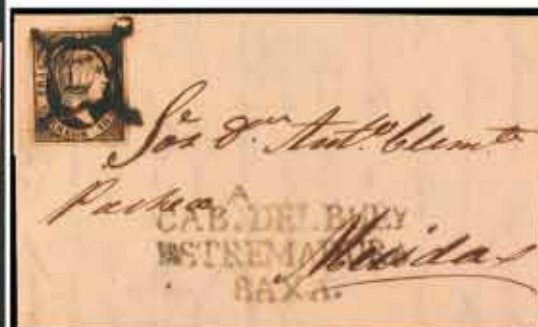 Sor Dn Anto Clemte
Pacheco
A
CAB. DEL BUEY
ESTREMADURA
BAXA.
Meridas